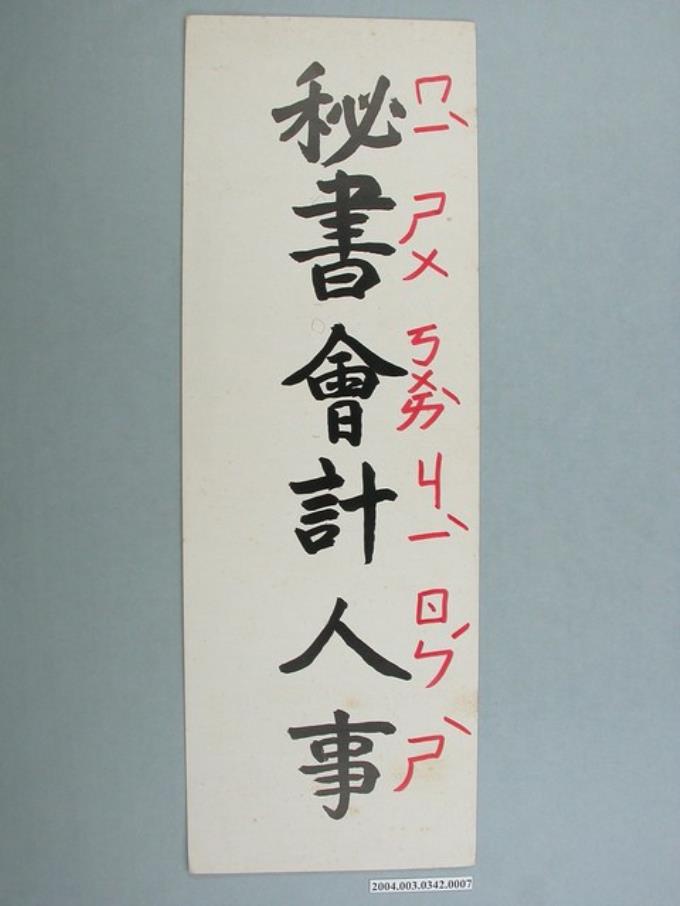 秘書會計人事
ㄇㄧˋ ㄕㄨ ㄎㄨㄞˋ ㄐㄧˋ ㄖㄣˊ ㄕˋ
2004.003.0342.0007